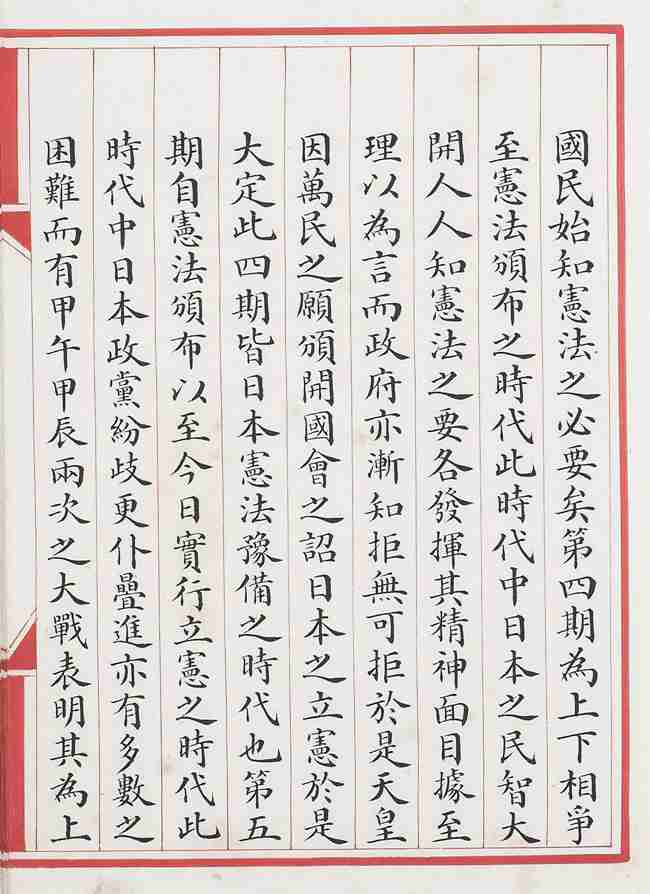 國民始知憲法之必要矣第四期為上下相爭
至憲法頒布之時代此時代中日本之民智大
開人人知憲法之要各發揮其精神面目據至
理以為言而政府亦漸知拒無可拒於是天皇
因萬民之願頒開國會之詔日本之立憲於是
大定此四期皆日本憲法豫備之時代也第五
期自憲法頒布以至今日實行立憲之時代此
時代中日本政黨紛歧更仆疊進亦有多數之
困難而有甲午甲辰兩次之大戰表明其為上